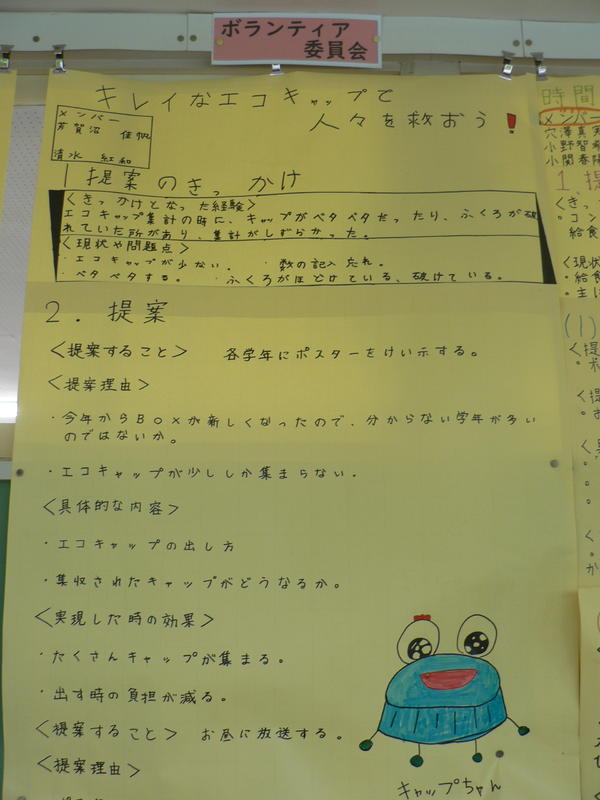 ボランティア
委員会
キレイなエコキャップで
人々を救おう!
メンバー
芳賀沼
清水 紅和
1提案のきっかけ
<きっかけとなった経験>
エコキャップ集計の時に、キャップがベタベタだったり、ふくろが破
れていた所があり、集計がしずらかった。
<現状や問題点>
・エコキャップが少ない。 ・数の記入忘れ。
・ベタベタする。 ・ふくろがほどけている、破けている。
2.提案
<提案すること> 各学年にポスターをけい示する。
<提案理由>
・今年からBoxが新しくなったので、分からない学年が多い
のではないか。
・エコキャップが少ししか集まらない.
<具体的な内容>
・エコキャップの出し方
・集収されたキャップがどうなるか。
<実現した時の効果>
・たくさんキャップが集まる。
・出す時の負担が減る。
<提案すること> お昼に放送する。
<提案理由>
キャップちゃん
時間
メンバー
穴澤真
小野智
小関春陽
1.提
<きっ
・コン
給食
<現状
・給食
・主に
(1)
<提